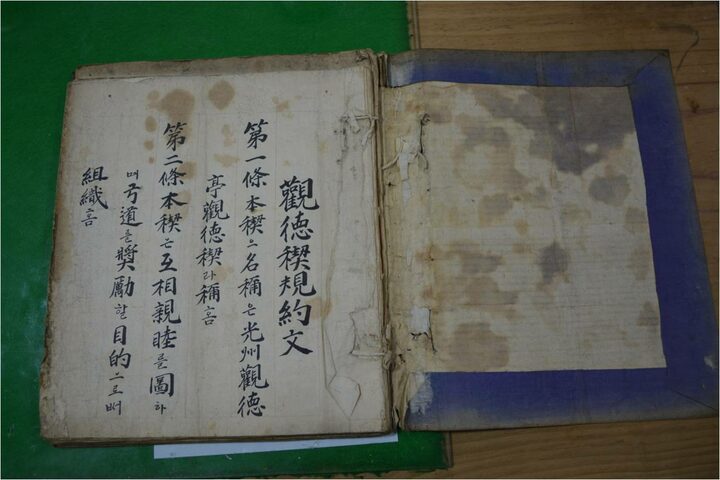 觀德稧規約文
第一條本稧으名稱은光州觀德
亭觀德稧라稱홈
第二條本稧는互相親睦를圖하
며弓道를奬勵할目的으로써
組織홈